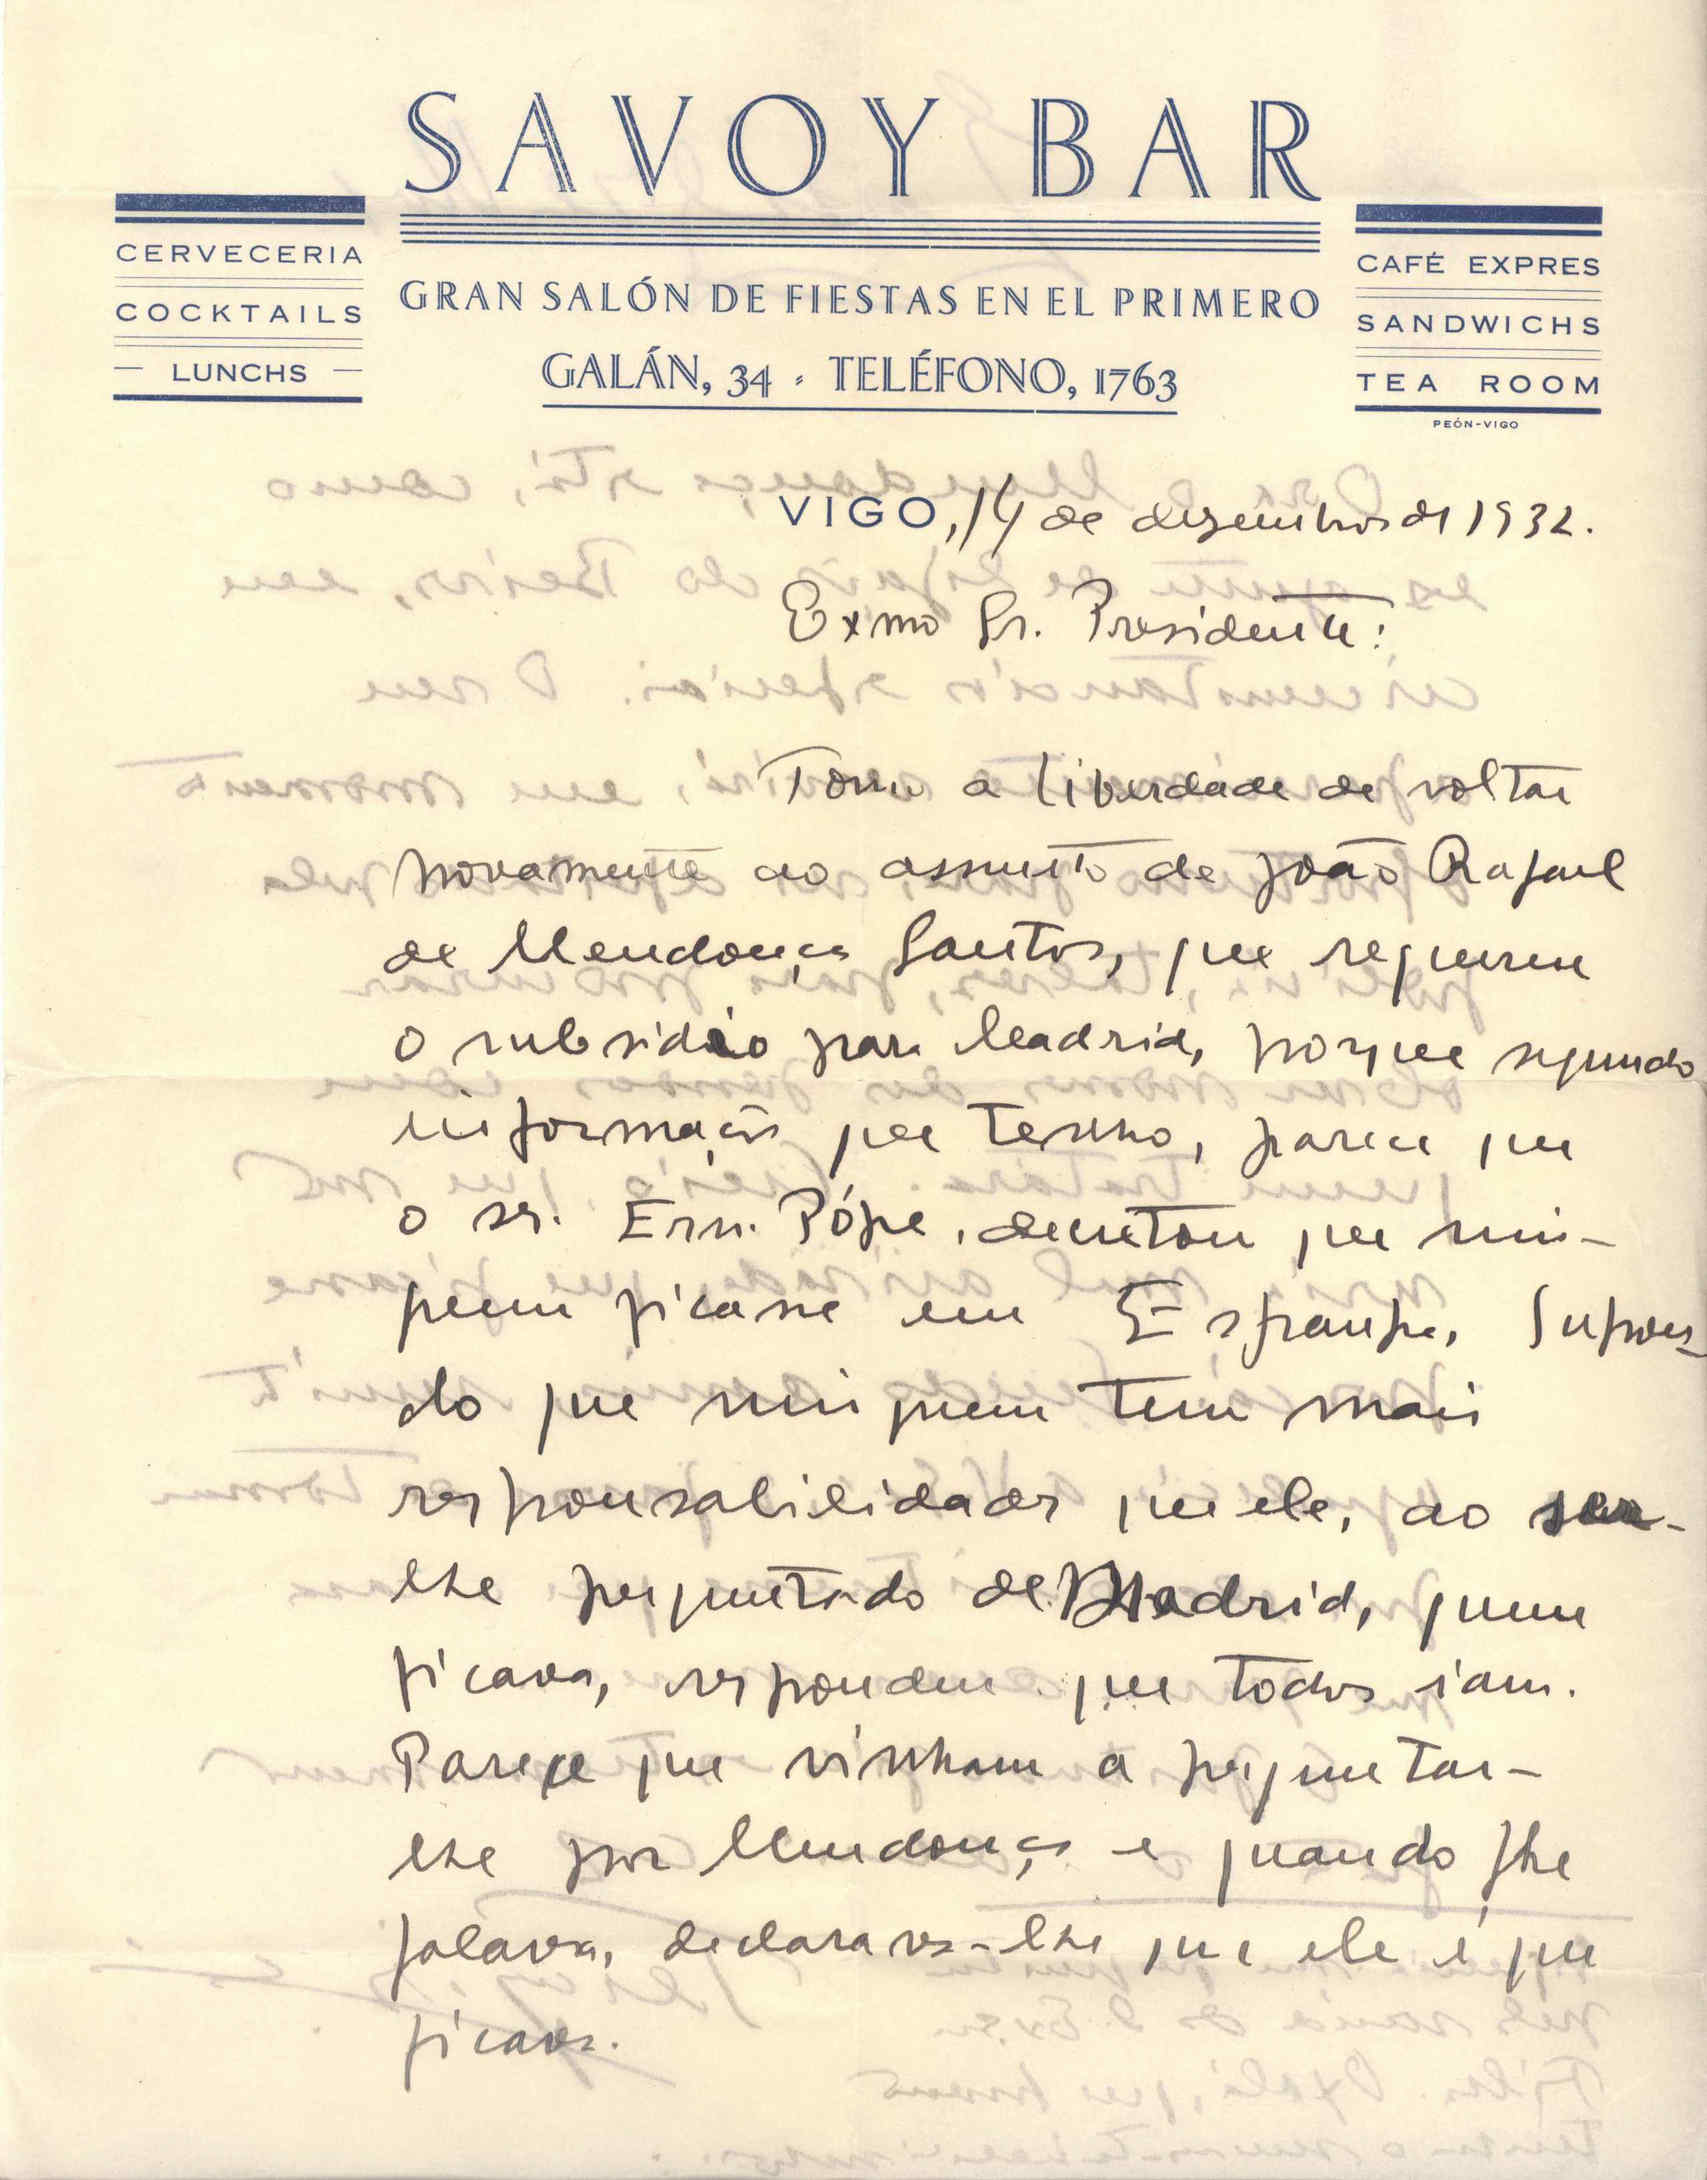 SAVOY BAR
CERVECERIA
COCKTAILS
— LUNCHS —
GRAN SALÓN DE FIESTAS EN EL PRIMERO
GALÁN, 34 - TELÉFONO, 1763
CAFÉ EXPRES
SANDWICHS
TEA ROOM
PEÓN-VIGO
VIGO, 14 de dezembro de 1932.
Exmo Sr. Presidente:
Tomo a liberdade de voltar
novamente ao assunto de João Rafael
de Mendonça Santos, que requereu
o subsidio para Madrid, porque segundo
informação que tenho, parece que
o sr. Ern. Pópe, decretou que nin-
guem ficasse em Espanha. Supon-
do que ninguem tem mais
responsabilidades que ele, ao ser-
lhe perguntado de Madrid, quem
ficava, respondeu que todos iam.
Parece que vinham a perguntar-
lhe por Mendonça e quando lhe
falava, declarava-lhe que ele é que
ficava.